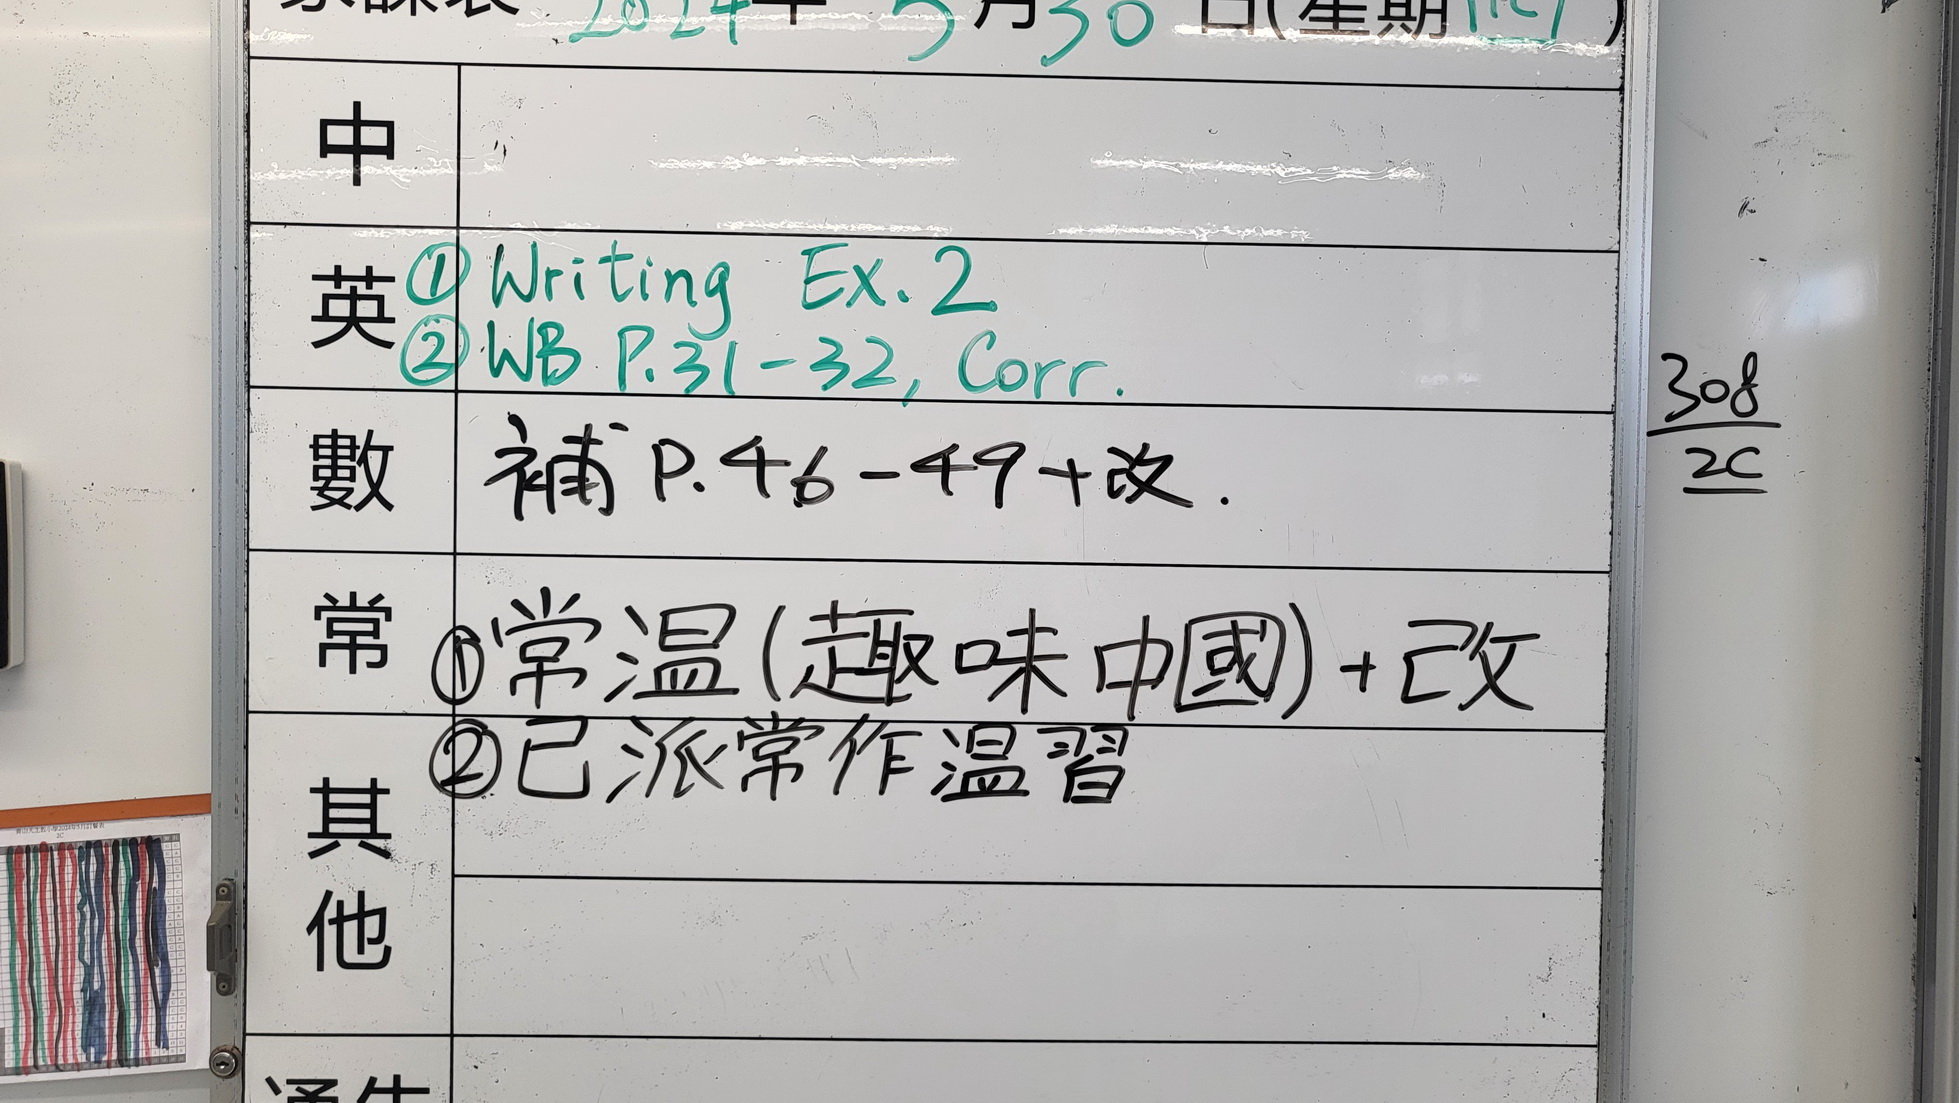 家課表 2024年5月30日(星期四)
中
英 ①Writing Ex. 2
②WB P.31-32, Corr.
數 補 P.46-49+改.
常 ①常温(趣味中國)+改
②已派常作温習
其他
通告
308
2C